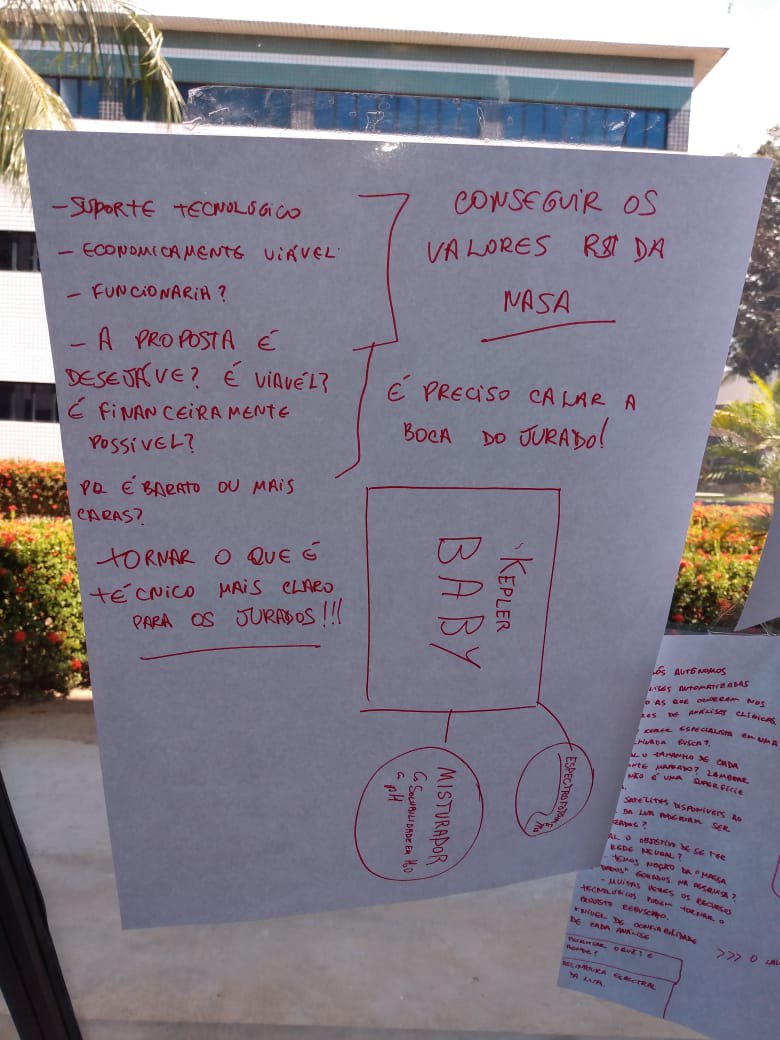 - SUPORTE TECNOLÓGICO
- ECONOMICAMENTE VIÁVEL
- FUNCIONARIA?
- A PROPOSTA É
DESEJÁVE? É VIAVÉL?
É FINANCEIRAMENTE
POSSÍVEL?
PQ É BARATO OU MAIS
CARAS?
TORNAR O QUE É
TÉCNICO MAIS CLARO
PARA OS JURADOS!!!
CONSEGUIR OS
VALORES R$ DA
NASA
É PRECISO CALAR A
BOCA DO JURADO!
KEPLER
BABY
MISTURADOR
SOLUBILIDADE EM H2O
pH
AUTÔNOMOS
AUTOMATIZADAS
AS QUE OCORREM NOS
DE ANÁLISES CLÍNICAS
ESPECIALISTA EM UMA
BUSCA?
O TAMANHO DE CADA
MAPEADO? LEMBRAR
NÃO É UMA SUPERFÍCIE
SATÉLITES DISPONÍVEIS AO
DA LUA PODERIAM SER
O OBJETIVO DE SE TER
REDE NEURAL?
- TEMOS NOÇÃO DA "MASSA
DADOS" GERADOS NA PESQUISA?
- MUITAS VEZES OS RECURSOS
TECNOLÓGICOS PODEM TORNAR O
PROJETO REBUSCADO.
NÍVEL DE CONFIABILIDADE
DE CADA ANÁLISE
O QUÊ? E
>>> O
ASSINATURA ESPECTRAL
DA LUA.